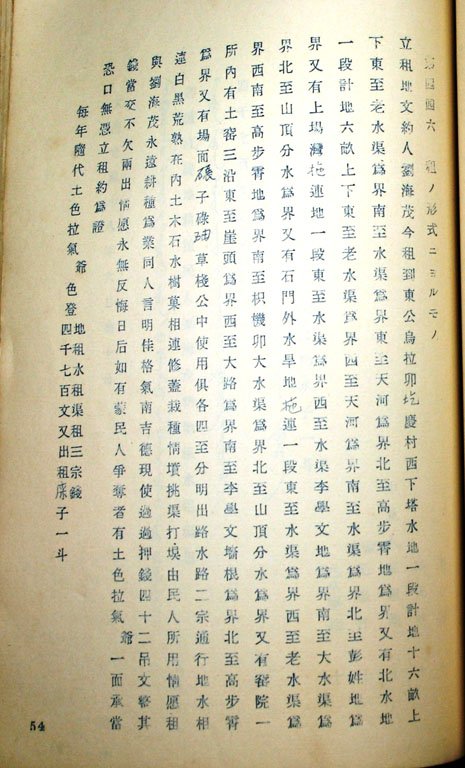 四六 租ノ形式ニヨルモノ
立租地文約人劉海茂今租到東公烏拉卯圪慶村西下塔水地一段計地十六畝上
下東至老水渠爲界南至水渠爲界東至天河爲界北至高步霄地爲界又有北水地
一段計地六畝上下東至老水渠爲界西至天河爲界南至水渠爲界北至彭姓地爲
界又有上塲灣拖連地一段東至水渠爲界西至水渠李學文地爲界南至大水渠爲
界北至山頂分水爲界又有石門外水旱地拖連一段東至水渠爲界西至老水渠爲
界西南至高步霄地爲界南至枳機卯大水渠爲界北至山頂分水爲界又有窰院一
所內有土窰三沿東至崖頭爲界西至大路爲界南至李學文墻根爲界北至高步霄
爲界又有塲面碾子碌砘草棧公中使用俱各四至分明出路水路二宗通行地水相
連白黑荒熟在內土木石水樹菓相連修蓋栽種情墳挑渠打埧由民人所用情愿租
與劉海茂永遠耕種爲業同人言明佳格氣南吉德現使過過押錢四十二吊文整其
錢當交不欠兩出情愿永無反悔日后如有蒙民人爭奪者有土色拉氣爺一面承當
恐口無憑立租約爲證
每年隨代土色拉氣爺色登地租水租渠租三宗錢四千七百文又出租糜子一斗
54